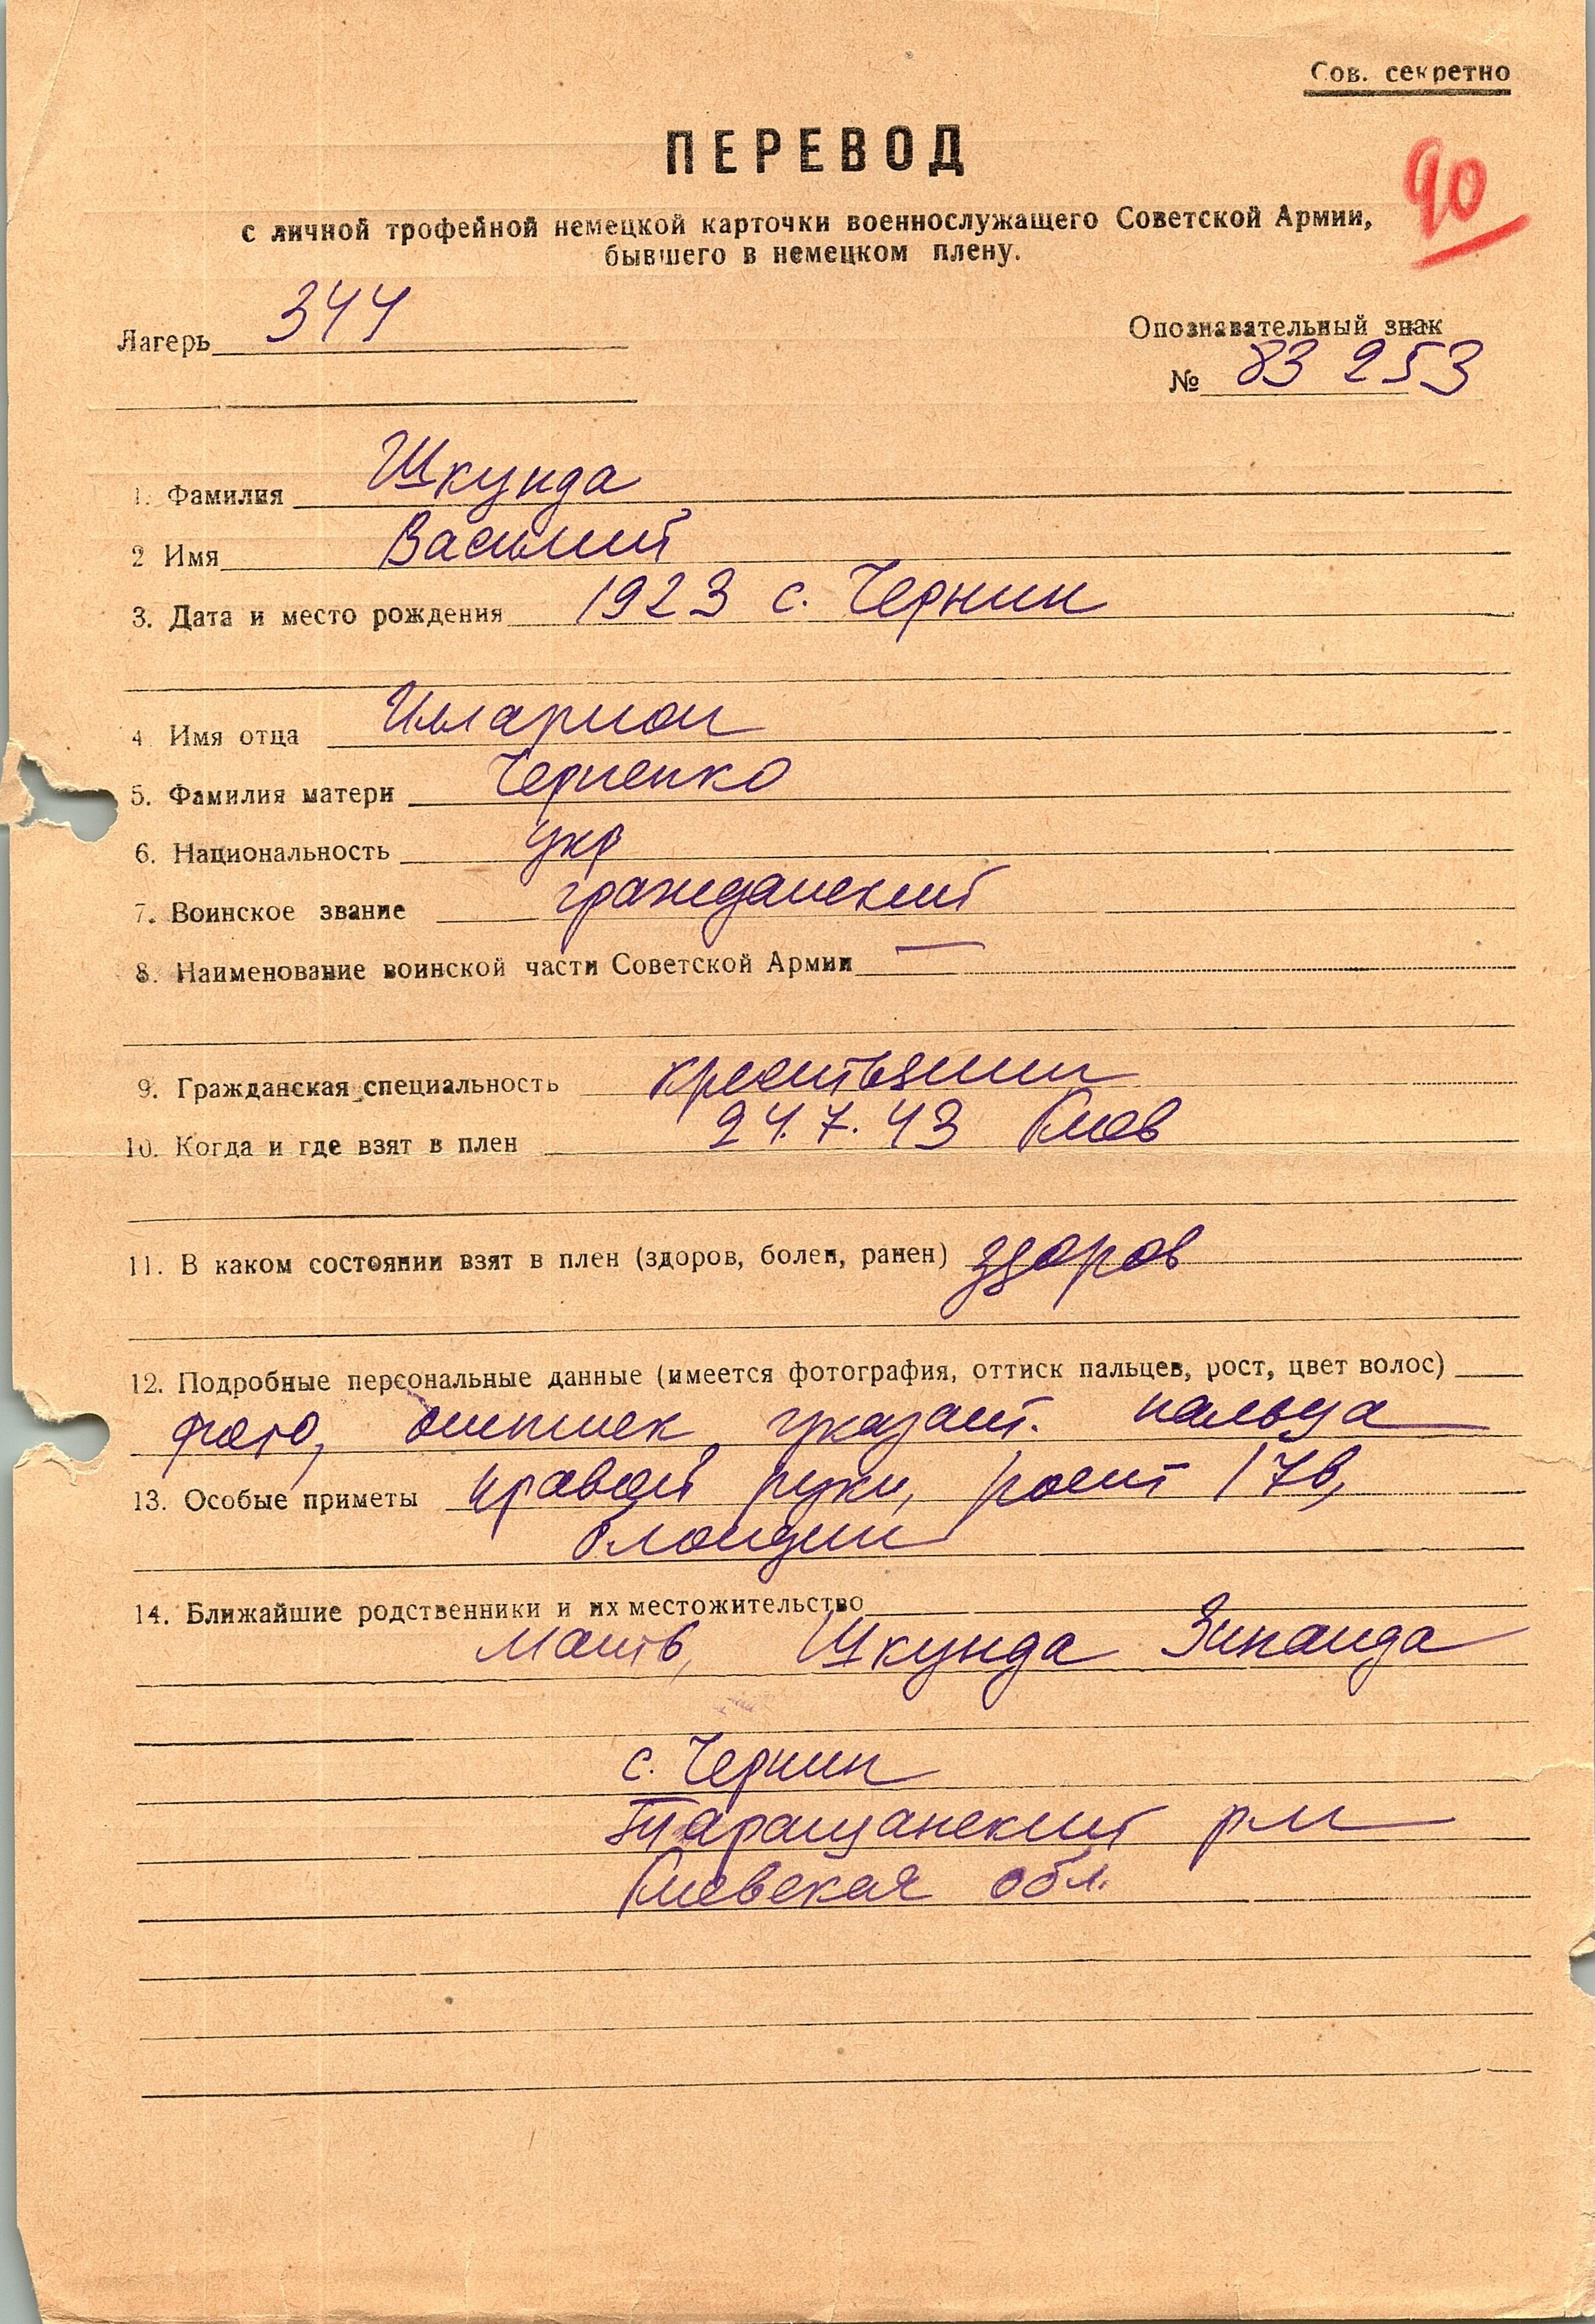 Сов. секретно
ПЕРЕВОД
90
с личной трофейной немецкой карточки военнослужащего Советской Армии,
бывшего в немецком плену.
Лагерь 344
Опознавательный знак
№ 83 253
1. Фамилия Шкунда
2 Имя Василий
3. Дата и место рождения 1923 с. Чернин
4 Имя отца Илларион
5. Фамилия матери Черненко
6. Национальность укр
7. Воинское звание гражданский
8. Наименование воинской части Советской Армии —
9. Гражданская специальность крестьянин
10. Когда и где взят в плен 24.7.43 Киев
11. В каком состоянии взят в плен (здоров, болен, ранен) здоров
12. Подробные персональные данные (имеется фотография, оттиск пальцев, рост, цвет волос)
фото, оттиск указат. пальца
13. Особые приметы правой руки, рост 176,
блондин
14. Ближайшие родственники и их местожительство
Мать, Шкунда Зинаида
с. Чернин
Таращанский р-н
Киевская обл.